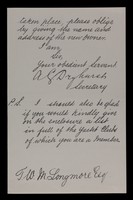 taken place, please oblige
by giving the name and
address of the new owner.
I am,
Sir,
Your obedient Servant
Secretary
P.S. I should also be glad
if you would kindly give
on the enclosure a list
in full of the Yacht Clubs
of which you are a Member
T. W. M. Longmore Esq